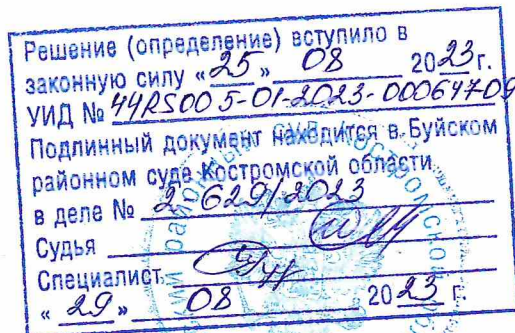 Решение (определение) вступило в
законную силу «25» 08 2023г.
УИД № 44RS005-01-2023-000647-09
Подлинный документ находится в Буйском
районном суде Костромской области
в деле № 2-629/2023
Судья
Специалист
« 29 » 08 2023 г.